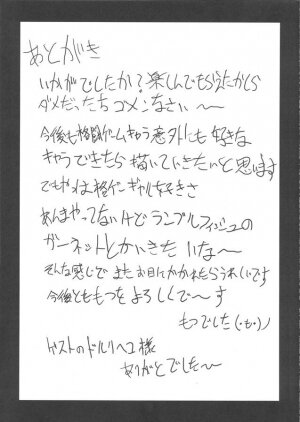 あとがき
いかがでしたか?楽しんでもらえたかしら
ダメだったらゴメンなさい～
今後も格闘ゲームキャラ意外にも好きな
キャラできたら描いていきたいと思います
でもやっぱ格ゲーギャル好きさ
あんまやってないけどランブルフィッシュの
ガーネットとかいきたいな～
そんな感じでまたお目にかかれたらうれしいです
今後とももつをよろしくで～す
もつでした(・ω・)ノ
ゲストのドルリヘユ様
ありがとでした～